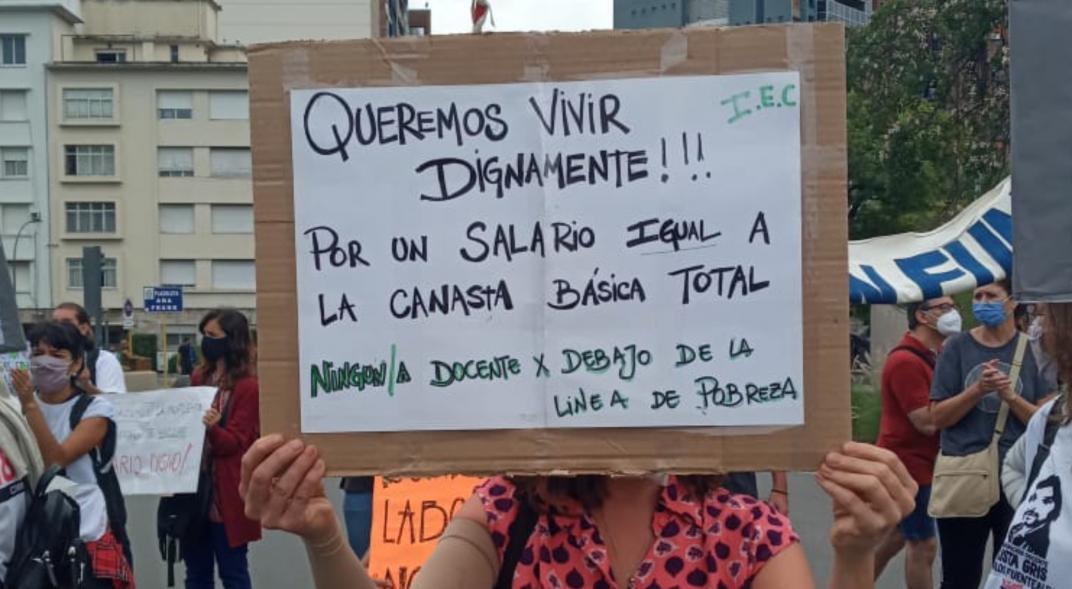 QUEREMOS VIVIR
I.E.C
DIGNAMENTE!!!
POR UN SALARIO IGUAL A
LA CANASTA BÁSICA TOTAL
NINGUN/A DOCENTE X DEBAJO DE LA
LINEA DE POBREZA
PLAZOLETA
ANA
FRANK
LABO